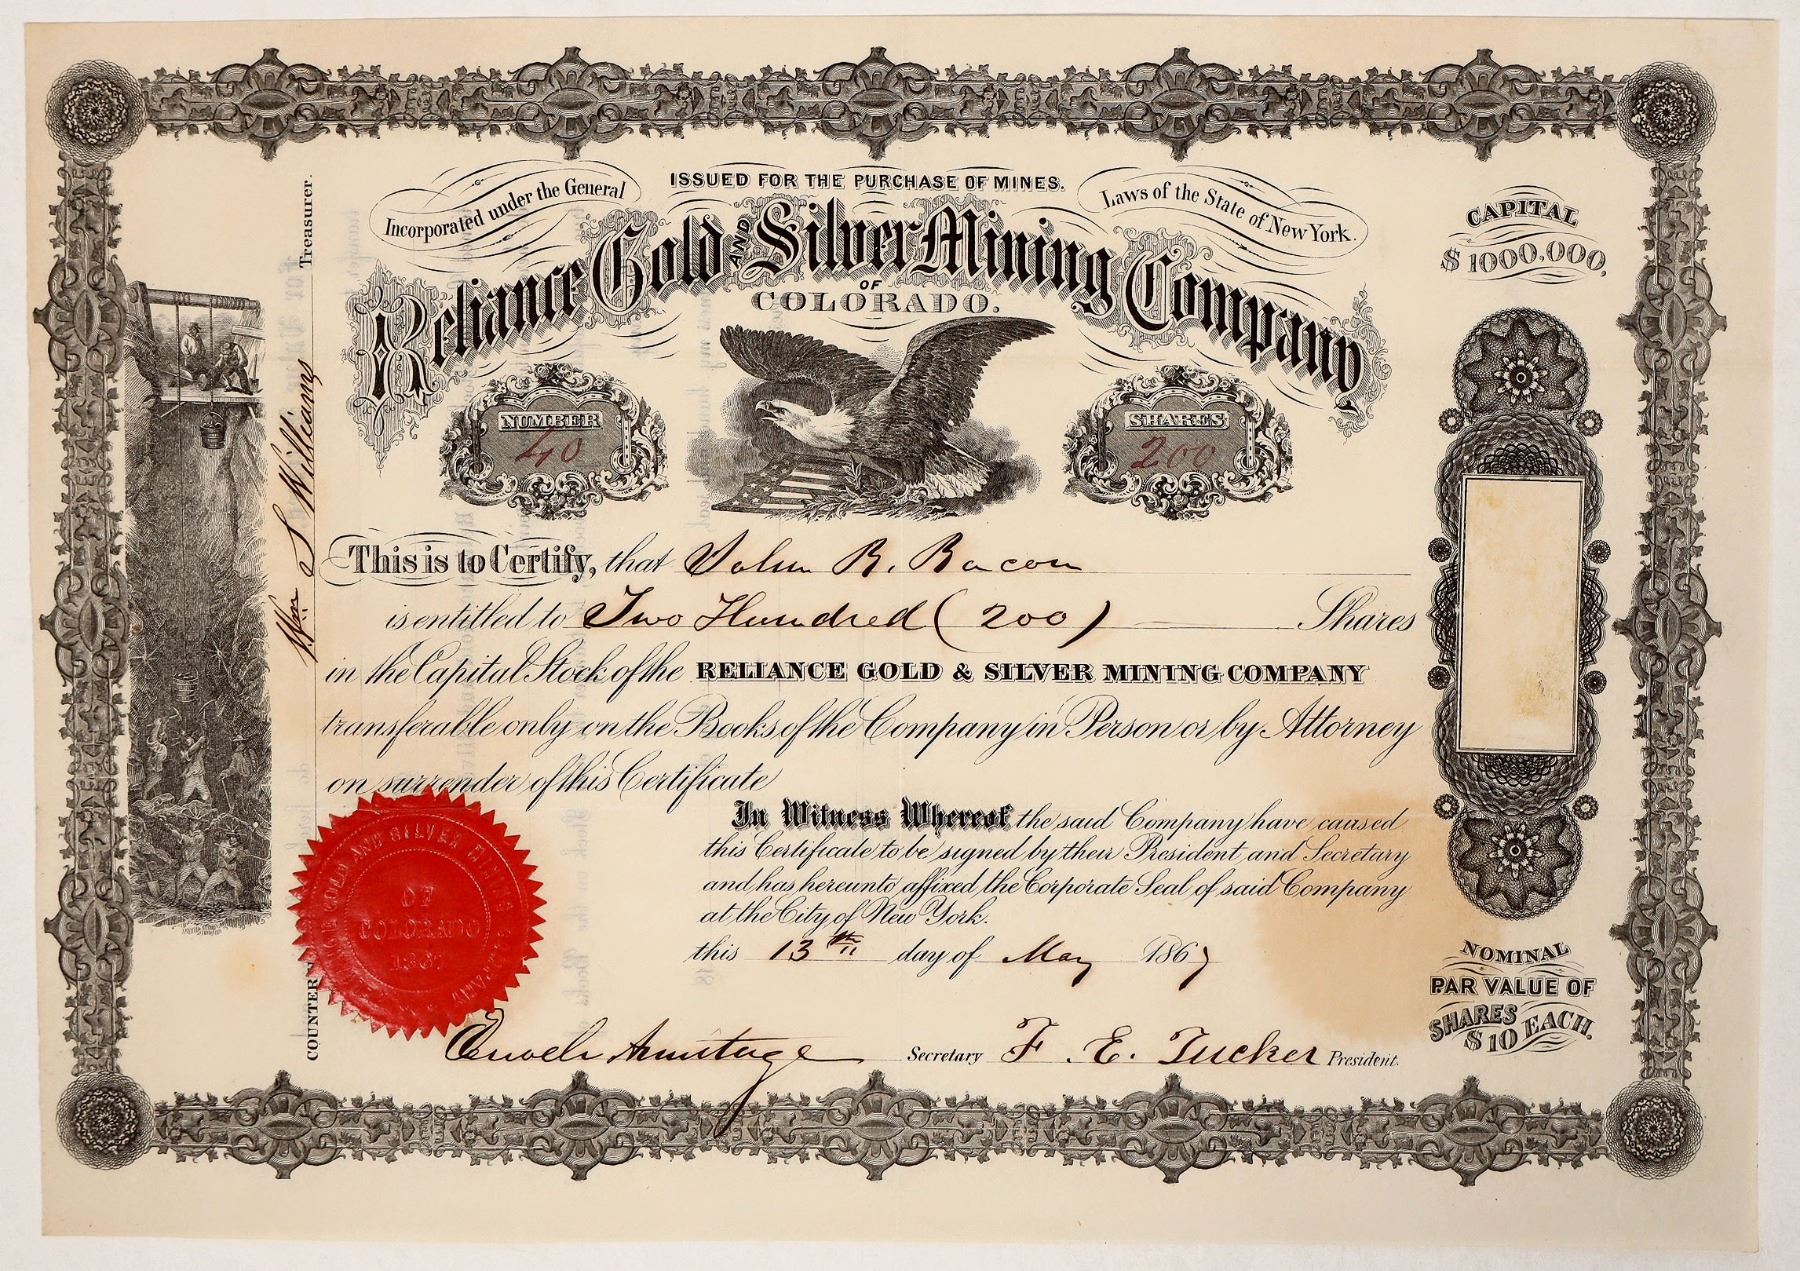 ISSUED FOR THE PURCHASE OF MINES.
Incorporated under the General
Laws of the State of New York.
Reliance Gold AND Silver Mining Company
OF
COLORADO.
CAPITAL
$1000,000,
NUMBER
40
SHARES
200
This is to Certify, that John R. Bacon
is entitled to Two Hundred (200) Shares
in the Capital Stock of the RELIANCE GOLD & SILVER MINING COMPANY
transferable only on the Books of the Company in Person or by Attorney
on surrender of this Certificate
In Witness Whereof the said Company have caused
this Certificate to be signed by their President and Secretary
and has hereunto affixed the Corporate Seal of said Company
at the City of New York.
this 13th day of May 1867
Enoch Armitage Secretary F. E. Tucker President.
COUNTER
Wm S Williams
Treasurer.
GOLD AND SILVER
OF
COLORADO
1867
NOMINAL
PAR VALUE OF
SHARES
$10 EACH.